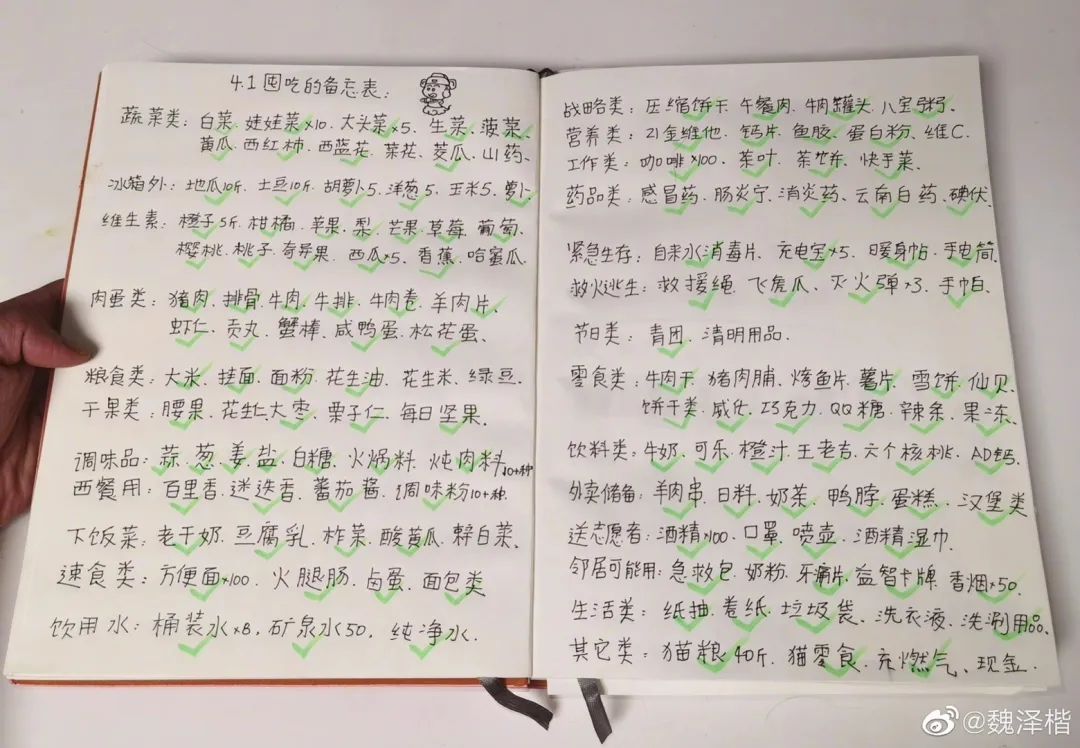 4.1 囤吃的备忘表:
蔬菜类: 白菜、娃娃菜×10、大头菜×5、生菜、菠菜、
黄瓜、西红柿、西蓝花、菜花、茭瓜、山药、
冰箱外: 地瓜10斤、土豆10斤、胡萝卜5、洋葱5、玉米5、萝卜、
维生素: 橙子5斤、柑橘、苹果、梨、芒果、草莓、葡萄、
樱桃、桃子、奇异果、西瓜×5、香蕉、哈蜜瓜、
肉蛋类: 猪肉、排骨、牛肉、牛排、牛肉卷、羊肉片、
虾仁、贡丸、蟹棒、咸鸭蛋、松花蛋、
粮食类: 大米、挂面、面粉、花生油、花生米、绿豆、
干果类: 腰果、花生仁、大枣、栗子仁、每日坚果、
调味品: 蒜、葱、姜、盐、白糖、火焗料、炖肉料10+种
西餐用: 百里香、迷迭香、蕃茄酱、调味粉10+种、
下饭菜: 老干奶、豆腐乳、柞菜、酸黄瓜、辣白菜、
速食类: 方便面×100、火腿肠、卤蛋、面包类
饮用水: 桶装水×8、矿泉水50、纯净水、
战略类: 压缩饼干、午餐肉、牛肉罐头、八宝粥、
营养类: 21金维他、钙片、鱼胶、蛋白粉、维C、
工作类: 咖啡×100、茶叶、茶饼、快手菜、
药品类: 感冒药、肠炎宁、消炎药、云南白药、碘伏、
紧急生存: 自来水消毒片、充电宝×5、暖身帖、手电筒、
救火逃生: 救援绳、飞虎瓜、灭火弹×3、手帕、
节日类: 青团、清明用品、
零食类: 牛肉干、猪肉脯、烤鱼片、薯片、雪饼、仙贝、
饼干类、威化、巧克力、QQ糖、辣条、果冻、
饮料类: 牛奶、可乐、橙汁、王老吉、六个核桃、AD钙、
外卖储备: 羊肉串、日料、奶茶、鸭脖、蛋糕、汉堡类
送志愿者: 酒精×100、口罩、喷壶、酒精湿巾、
邻居可能用: 急救包、奶粉、牙痛片、益智卡牌、香烟×50、
生活类: 纸抽、卷纸、垃圾袋、洗衣液、洗涮用品、
其它类: 猫粮40斤、猫零食、充燃气、现金、
@魏泽楷